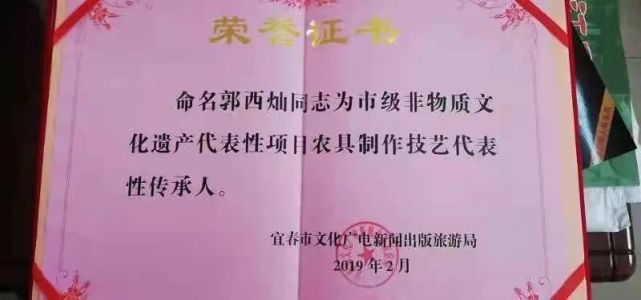 荣誉证书
命名郭西灿同志为市级非物质文
化遗产代表性项目农具制作技艺代表
性传承人。
宜春市文化广电新闻出版旅游局
2019年2月